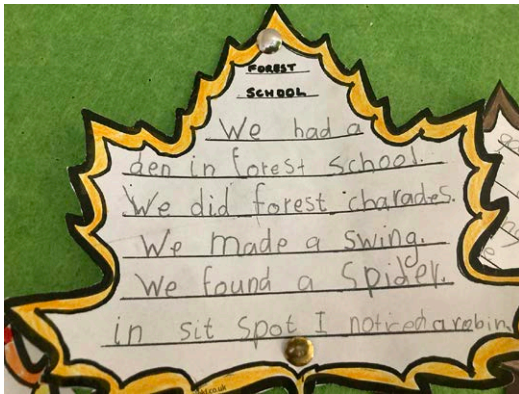 FOREST
SCHOOL
We had a
den in forest school.
We did forest charades.
We made a swing.
We found a Spider.
in sit spot I noticed a robin